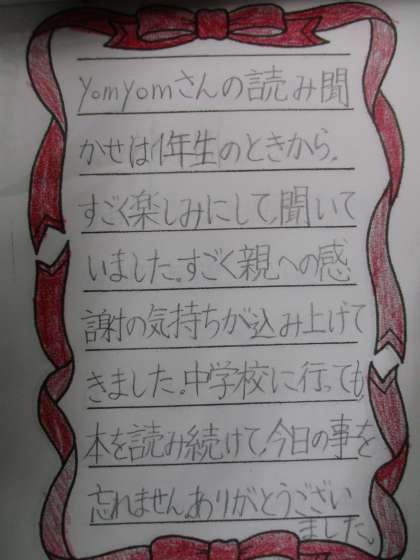 yomyomさんの読み聞
かせは1年生のときから、
すごく楽しみにして、聞いて
いました。すごく親への感
謝の気持ちが込み上げて
きました。中学校に行っても、
本を読み続けて、今日の事を
忘れません。ありがとうござい
ました。